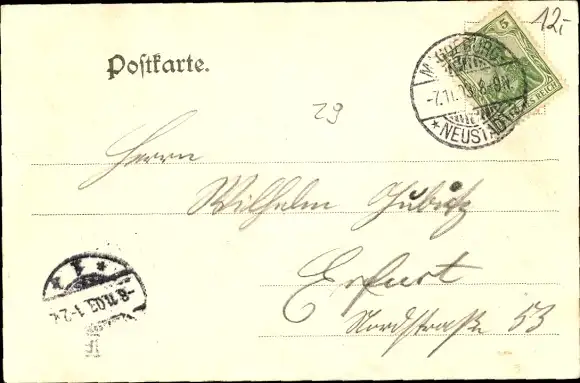 12,-
5
REICH
Postkarte.
MAGDEBURG
-7.11.03. 8-9N.
* NEUSTADT
29
Herrn
Wilhelm
Erfurt
Nordstraße 53
-8.11.03. 1-2